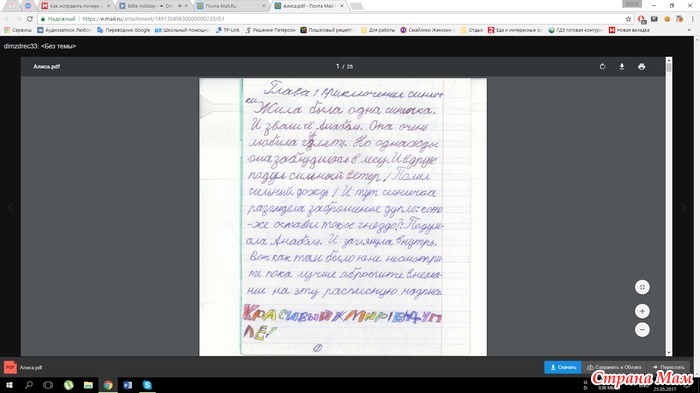 Как исправить почерк
Billie Holiday
Почта Mail.Ru
Алиса.pdf - Почта Mail.
Надежный
https://e.mail.ru/attachment/14913049830000000220/0;1
Сервисы
Аудиокниги Online
Переводчик Google
Школьный помощник
TP-Link
Решение Петерсон
Пошаговый рецепт
Для работы
Смайлики Skype
Отдых
Еда и интересные
ГДЗ готовая контрол
Новая вкладка
dimzdrec33: <Без темы>
Алиса.pdf
1 / 25
Глава 1 приключение синич-
ки
Жила была одна синичка.
И звали её Анабэль. Она очень
любила гулять. Но однажды
она заблудилась в лесу. И вдруг
подул сильный ветер! Полил
сильный дождь! И тут синичка
разглядела заброшеное дупло: кто
-же оставил такое гнездо?: Подум-
ала Анабэль. И заглянула внутрь.
Вот как там было не не смотри-
те пока лучше обротите внема-
ние на эту расписную надпись
КРАСИВЫЙ МИР В ДУП
ЛЕ!
1
Алиса.pdf
Скачать
Сохранить в Облако
Переслать
25.05.2017
Страна Мам